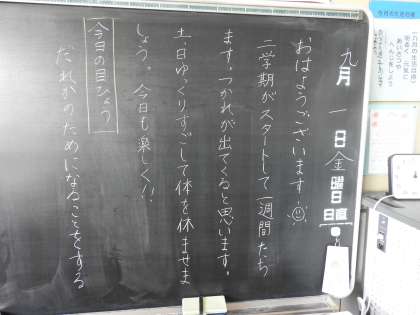 九月一日金曜日
日直
おはようございます!
二学期がスタートして一週間たち
ます。つかれが出てくると思います。
土、日ゆっくりすごして体を休ませま
しょう。今日も楽しく!!
今日の目ひょう
だれかのためになることをする